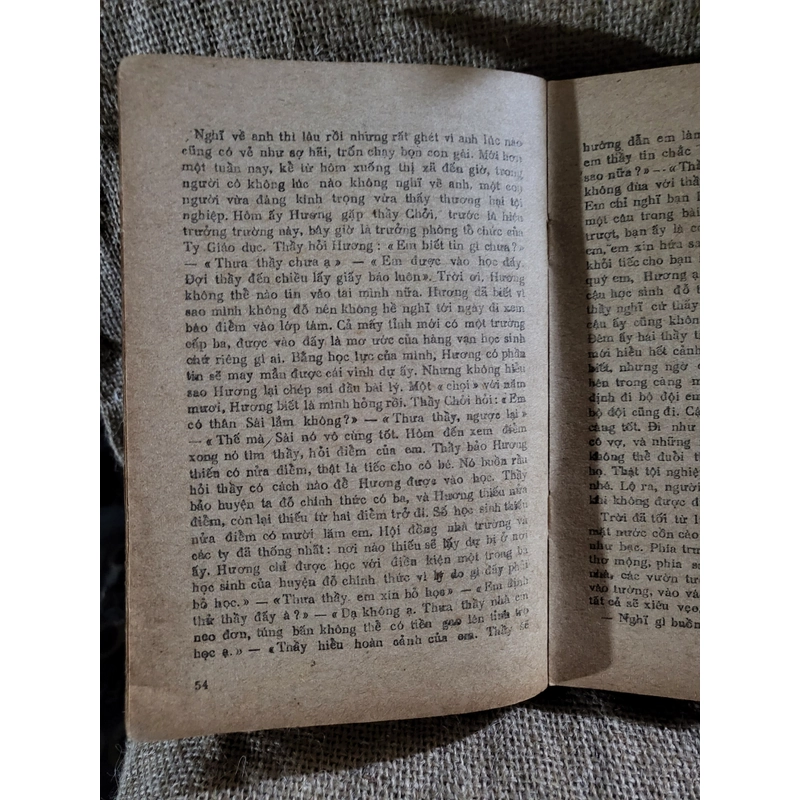 Nghĩ về anh thì lâu rồi nhưng rất ghét vì anh lúc nào
cũng có vẻ như sợ hãi, trốn chạy bọn con gái. Mới hơn
một tuần nay, kể từ hôm xuống thị xã đến giờ, trong
người cô không lúc nào không nghĩ về anh, một con
người vừa đàng kính trọng vừa thấy thương hại tội
nghiệp. Hôm ấy Hương gặp thầy Chởi, trước là hiệu
trưởng trường này, bây giờ là trưởng phòng tổ chức của
Ty Giáo dục. Thầy hỏi Hương: «Em biết tin gì chưa?»
— «Thưa thầy chưa ạ» — «Em được vào học đấy.
Đợi thầy đến chiều lấy giấy báo luôn». Trời ơi, Hương
không thể nào tin vào tai mình nữa. Hương đã biết vì
sao mình không đỗ nên không hề nghĩ tới ngày đi xem
báo điểm vào lớp tám. Cả mấy tỉnh mới có một trường
cấp ba, được vào đấy là mơ ước của hàng vạn học sinh
chứ riêng gì ai. Bằng học lực của mình, Hương có phần
tin sẽ may mắn được cái vinh dự ấy. Nhưng không hiểu
sao Hương lại chép sai đầu bài lý. Một «chọi» với năm
mươi, Hương biết là mình hỏng rồi. Thầy Chởi hỏi: «Em
có thân Sài lắm không?» — «Thưa thầy, ngược lại»
— «Thế mà Sài nó vô cùng tốt. Hôm đến xem điểm
xong nó tìm thầy, hỏi điểm của em. Thầy bảo Hương
thiếu có nửa điểm, thật là tiếc cho cô bé. Nó buồn rầu
hỏi thầy có cách nào để Hương được vào học. Thầy
bảo huyện ta đỗ chính thức có ba, và Hương thiếu nửa
điểm, còn lại thiếu từ hai điểm trở đi. Số học sinh thiếu
nửa điểm có mười lăm em. Hội đồng nhà trường và
các ty đã thống nhất: nơi nào thiếu sẽ lấy dự bị ở nơi
ấy. Hương chỉ được học với điều kiện một trong ba
học sinh của huyện đỗ chính thức vì lý do gì đấy phải
bỏ học.» — «Thưa thầy, em xin bỏ học» — «Em định
thử thầy đấy à?» — «Dạ không ạ. Thưa thầy nhà em
neo đơn, túng bấn không thể có tiền gạo lên tỉnh trọ
học ạ.» — «Thầy hiểu hoàn cảnh của em. Thầy sẽ
54
hướng dẫn em làm
em thầy tin chắc
sao nữa?» — «Thầ
không đùa với thầ
Em chỉ nghĩ bạn l
một câu trong bài
trượt, bạn ấy là c
em, em xin hứa sa
khỏi tiếc cho bạn
quý em, Hương ạ
cậu học sinh đỗ t
thầy nghĩ cứ thấy
cậu ấy cũng khôn
Đêm ấy hai thầy t
mới hiểu hết cảnh
biết, nhưng ngờ
bên trong càng m
định đi bộ đội em
bộ đội cũng đi. Cậ
càng tốt. Đi như
có vợ, và những
không thể đuổi t
họ. Thật tội nghiệ
nhé. Lộ ra, người
khi không được đ
Trời đã tối từ l
mặt nước cồn cào
như bạc. Phía tr
thơ mộng, phía s
nhà, các vườn tư
vào tường, vào vá
tất cả sẽ xiêu vẹo,
— Nghĩ gì buồn